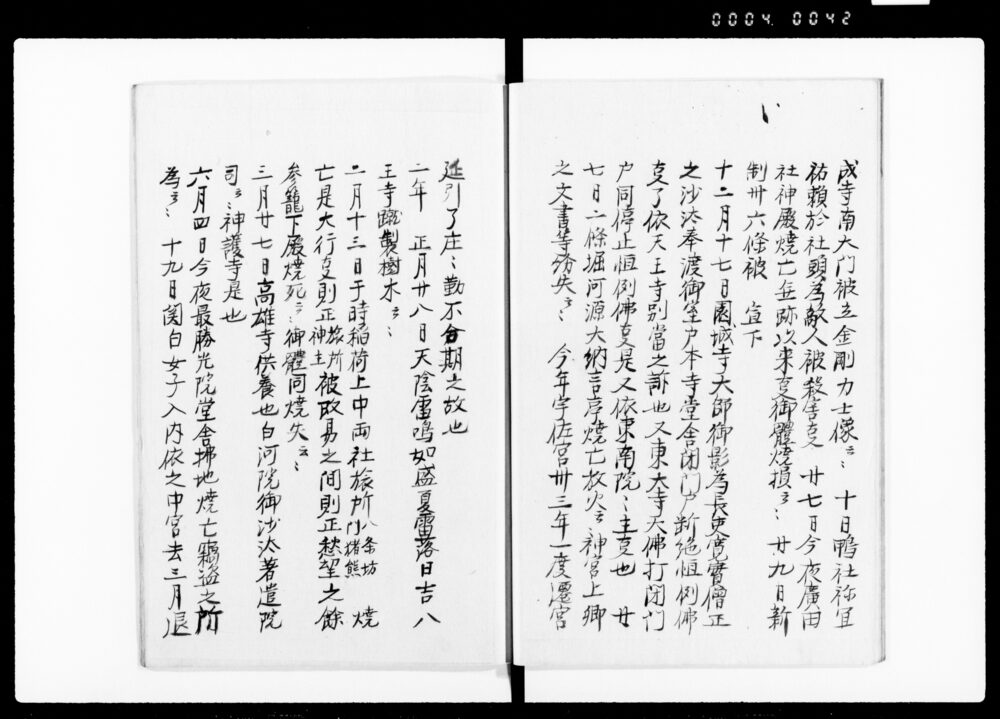 0004 0042
成寺南大门被立金剛力士像云〻 十日鴨社祢宜
祐頼於社頭為敵人被殺害㕝 廿七日今夜廣田
社神殿焼亡無跡以来㕝御體焼損云〻 廿九日新
制卅六條被 宣下
十二月十七日園城寺大師御影為長吏覚實僧正
之沙汰奉渡御室户本寺堂舎閉门户断絶恒例佛
㕝了依天王寺别當之訴也又東大寺大佛打閉门
户同停止恒例佛㕝是又依東南院〻主㕝也 廿
七日二條堀河源大納言亭焼亡放火云〻神宮上卿
之文書等紛失云〻 今年宇佐宮卅三年一度遷宮
延引了庄〻勤不合期之故也
二年 正月廿八日天陰雷鳴如盛夏雷落日吉八
王寺 製樹木云〻
二月十三日于時稲荷上中両社旅所八条坊门猪熊 焼
亡是大行㕝則正旅所神主被改易之間則正愁望之餘
参籠下殿焼死云〻御體同焼失云〻
三月廿七日高雄寺供養也白河院御沙汰著遣院
司云〻神護寺是也
六月四日今夜最勝光院堂舎拂地焼亡竊盗之所
為云〻 十九日関白女子入内依之中宮去三月退